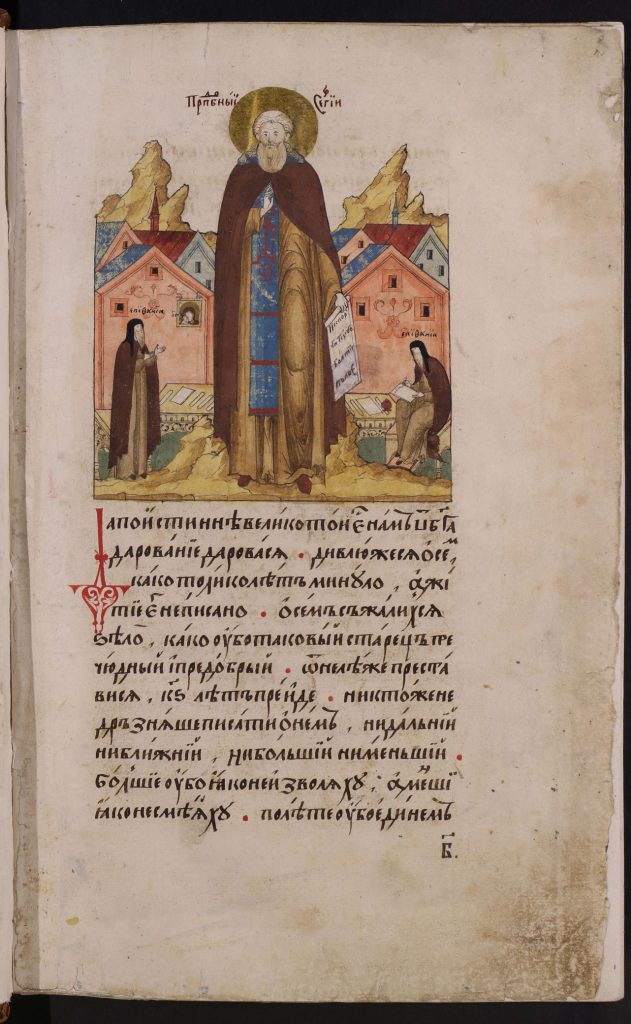 Прпⷣбный Сергїи
епїѳанїа
епїѳанїа
Дапои҆стиннѣ великото и҆ е҆͏҃ намъ ѿ б҃га
дарованїе даровася . дивлюжеся ѻ҆ се ⷨ,
како толико лѣтъ минуло , а҆жи
тїе є҆͏҃ неписано . ѻ҆семъ съжалихся
ѕѣло , како ѹ҆бо таковый старецъ пре
чюдный и҆предобрый . ѿнелѣже преста
вися , к҃ѕ лѣтъ прейде . никтожене
дръзняше писати ѻ҆немъ , нидальнїй
ниближнїй , нибольшїй нименьшїй .
болшїе ѹ҆бо ꙗ҆ко неизволяху , а҆меⷩшїи
ꙗ҆ко несмѣꙗ҆ху . полѣте ѹ҆бо единемъ
в҃.